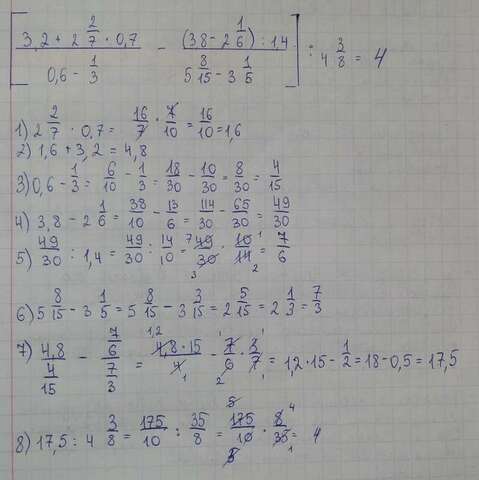 [(3,2 + 2 2/7 · 0,7)/(0,6 - 1/3) - ((38 - 2 1/6) : 1,4)/(5 8/15 - 3 1/5)] : 4 3/8 = 4
1) 2 2/7 · 0,7 = 16/7 · 7/10 = 16/10 = 1,6
2) 1,6 + 3,2 = 4,8
3) 0,6 - 1/3 = 6/10 - 1/3 = 18/30 - 10/30 = 8/30 = 4/15
4) 3,8 - 2 1/6 = 38/10 - 13/6 = 114/30 - 65/30 = 49/30
5) 49/30 : 1,4 = 49/30 : 14/10 = 49/30 · 10/14 = 7/6
6) 5 8/15 - 3 1/5 = 5 8/15 - 3 3/15 = 2 5/15 = 2 1/3 = 7/3
7) 4,8/(4/15) - (7/6)/(7/3) = (4,8 · 15)/4 - 7/6 · 3/7 = 1,2 · 15 - 1/2 = 18 - 0,5 = 17,5
8) 17,5 : 4 3/8 = 175/10 : 35/8 = 175/10 · 8/35 = 4